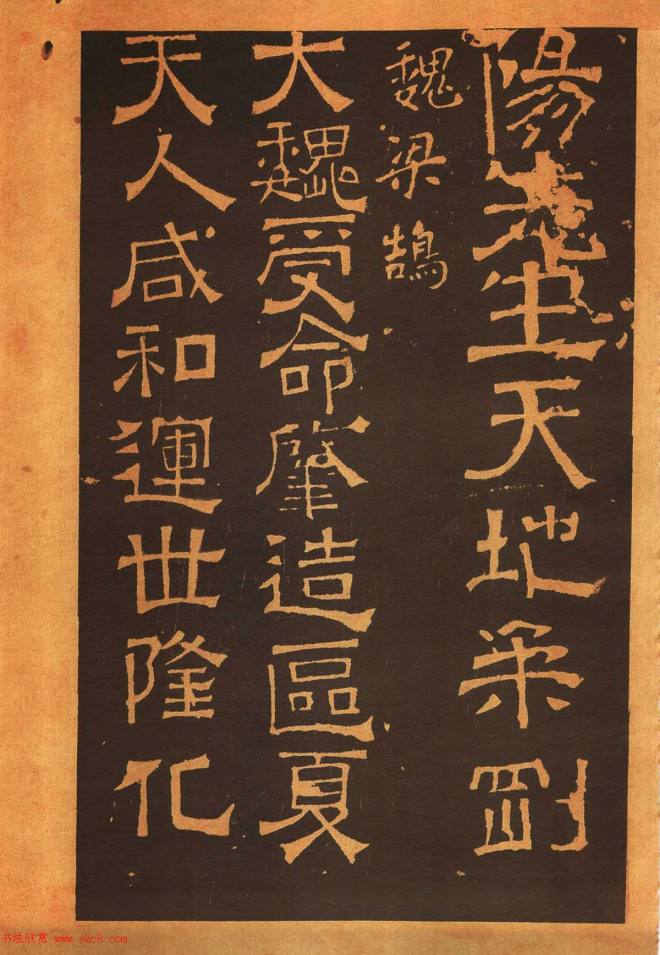 陽先生天地柔剛
魏梁鵠
大魏受命肇造區夏
天人咸和運世隆化
书法欣赏 www.yac8.com